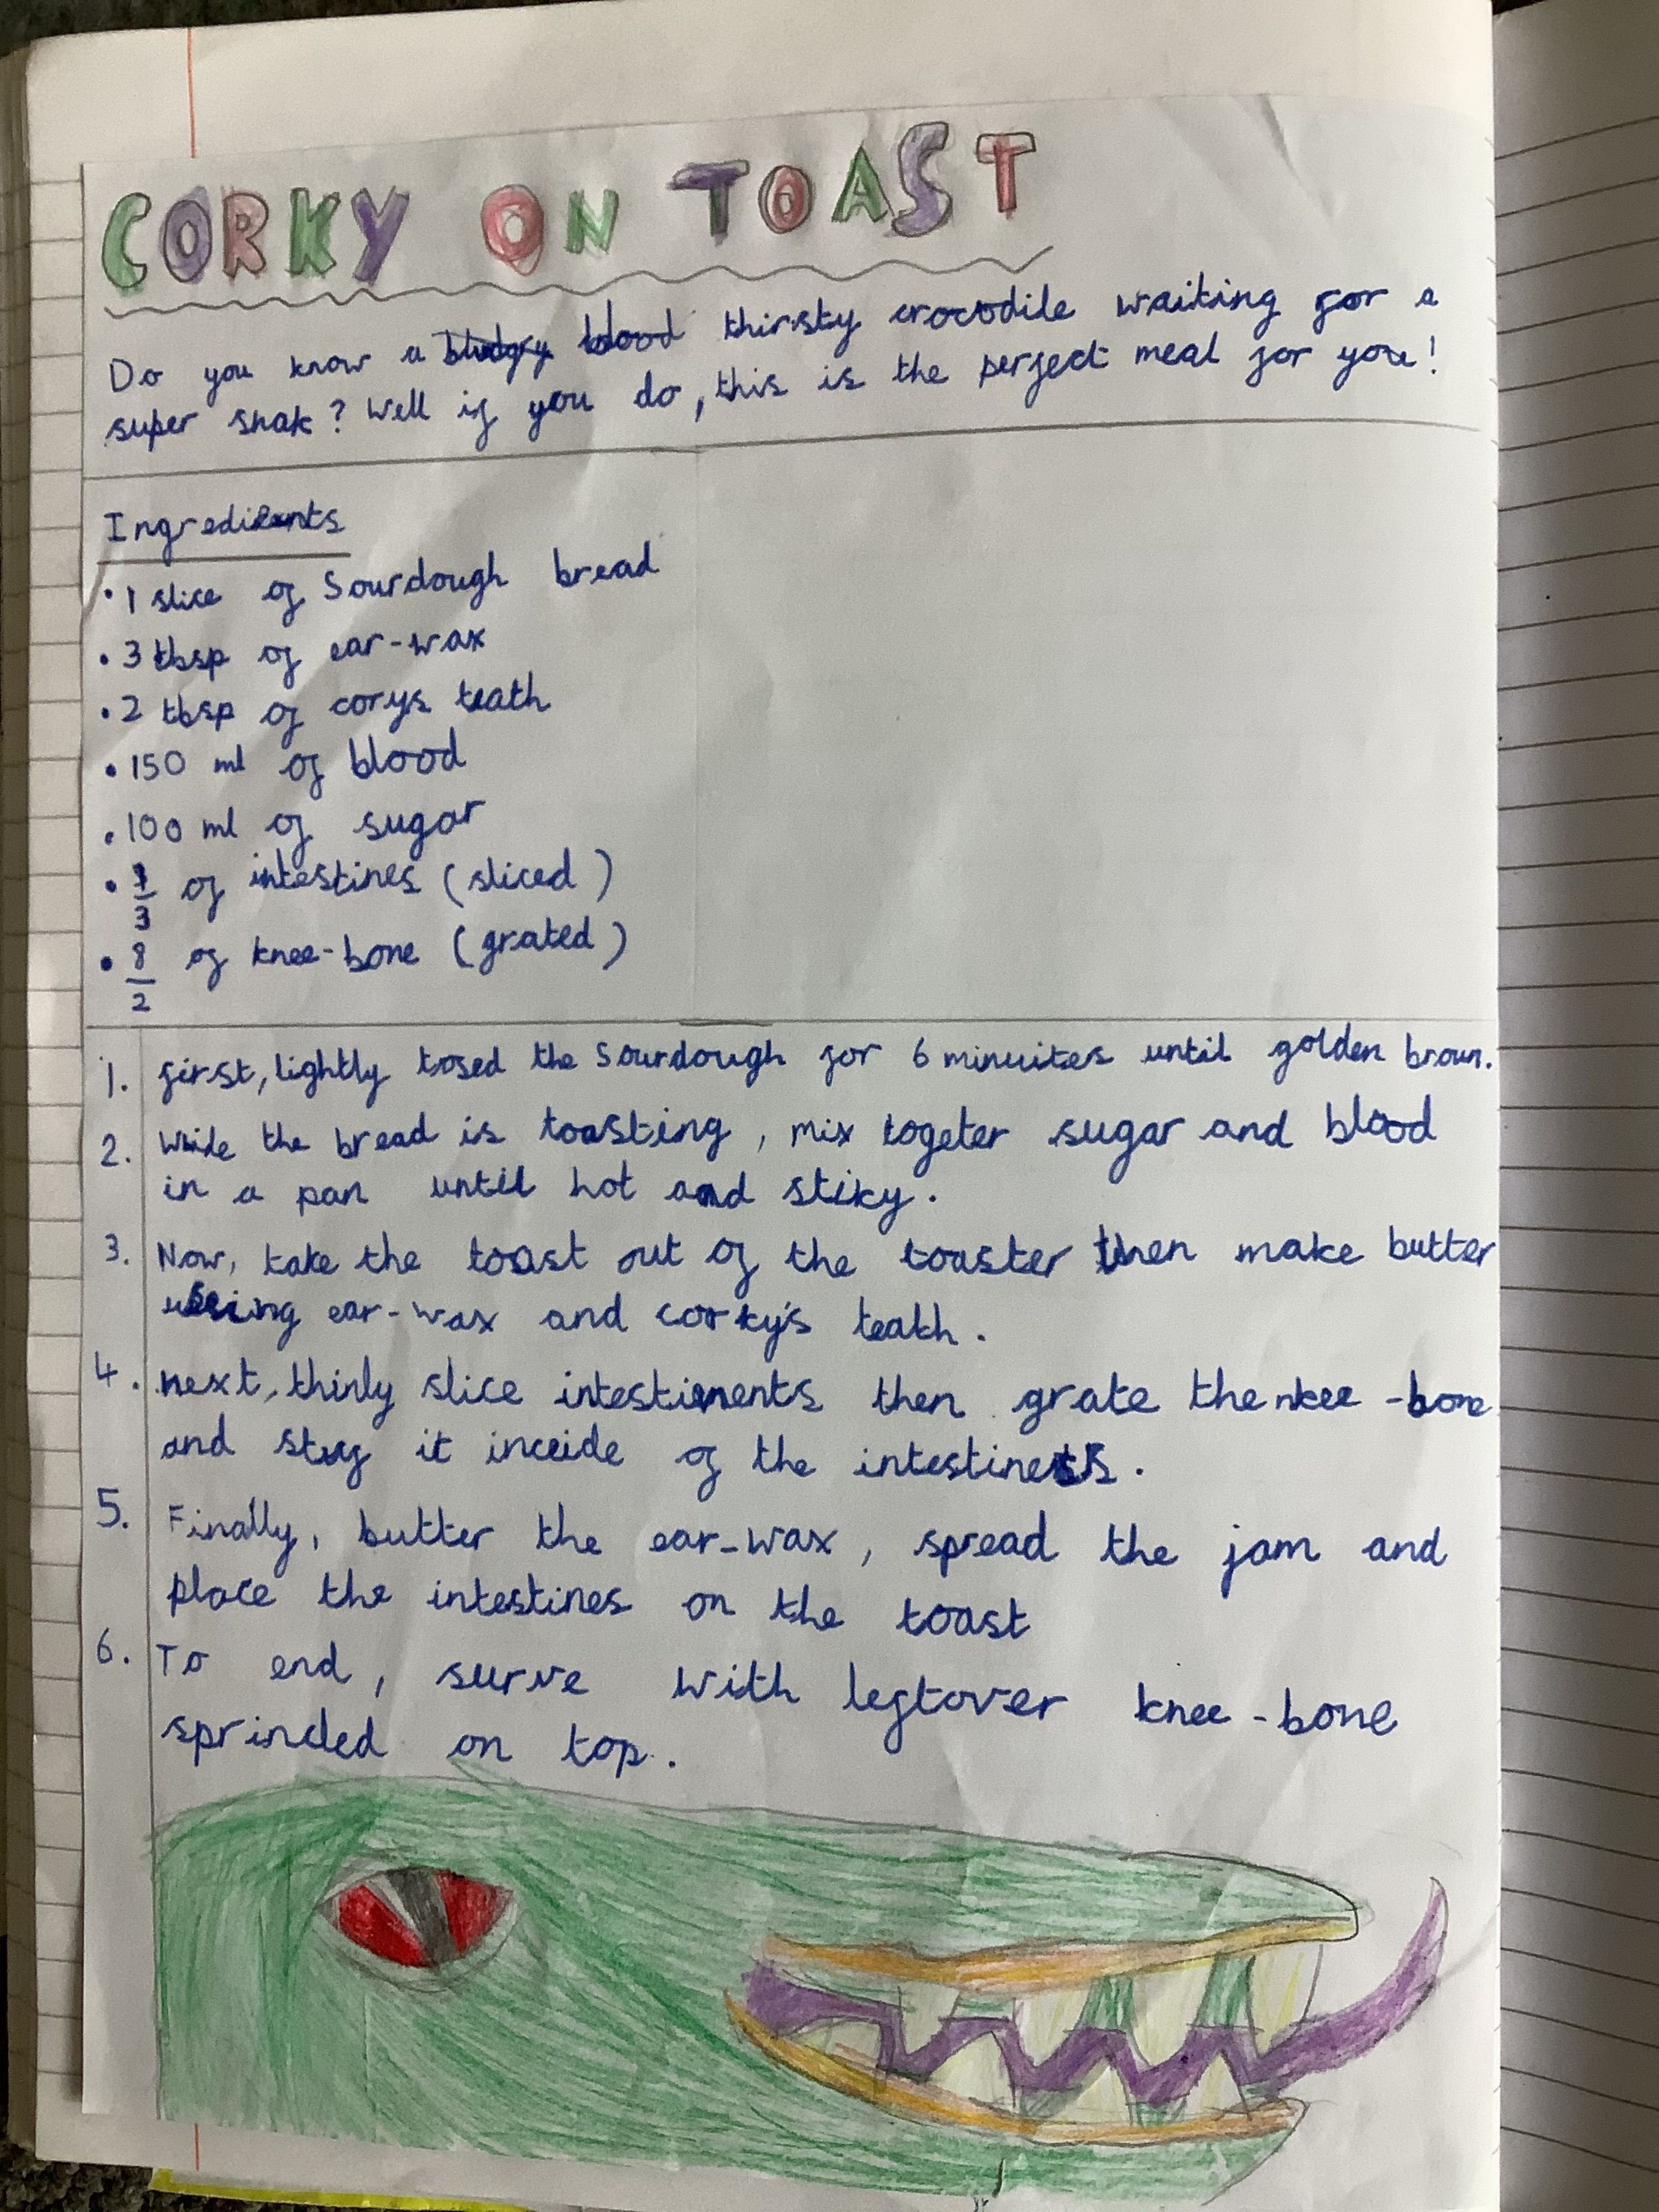 CORKY ON TOAST
Do you know a blood thirsty crocodile waiting for a
super snak? Well if you do, this is the perfect meal for you!
Ingredients
• 1 slice of Sourdough bread
• 3 tbsp of ear-wax
• 2 tbsp of corys teath
• 150 ml of blood
• 100 ml of sugar
• 1/3 of intestines (sliced)
• 8/2 of knee-bone (grated)
1. first, lightly tosed the Sourdough for 6 minuites until golden brown.
2. While the bread is toasting, mix togeter sugar and blood
in a pan until hot and stiky.
3. Now, take the toast out of the toaster then make butter
using ear-wax and corky's teath.
4. next, thinly slice intestinents then grate the nkee-bone
and stuf it inceide of the intestines.
5. Finally, butter the ear-wax, spread the jam and
place the intestines on the toast
6. To end, surve with leftover knee-bone
sprincled on top.